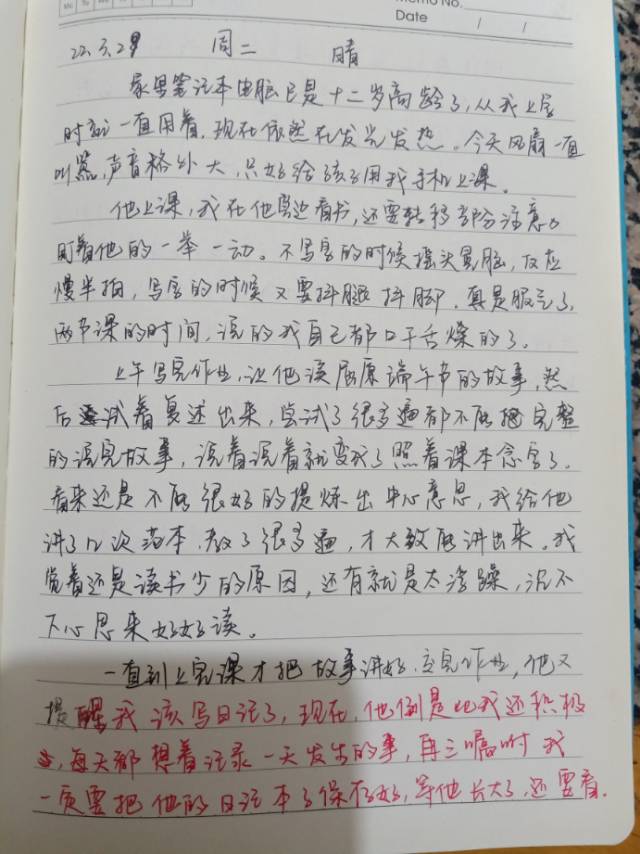 Memo No.
Date / /
22.3.29 周二 晴
家里笔记本电脑已是十二岁高龄了,从我上学
时就一直用着,现在依然在发光发热。今天风扇一直
叫嚣,声音格外大,只好给孩子用我手机上课。
他上课,我在他旁边看书,还要转移部分注意力
盯着他的一举一动。不写字的时候摇头晃脑,反应
慢半拍,写字的时候又要抖腿抖脚,真是服气了,
两节课的时间,说的我自己都口干舌燥的了。
上午写完作业,让他读屈原端午节的故事,然
后试着复述出来,尝试了很多遍都不能把完整
的说完故事,说着说着就变成了照着课本念字了。
看来还是不能很好的提炼出中心意思,我给他
讲了几次范本,教了很多遍,才大致能讲出来。我
觉着还是读书少的原因,还有就是太浮躁,沉不
下心思来好好读。
一直到上完课才把故事讲好,交完作业,他又
提醒我该写日记了,现在,他倒是比我还积极
,每天都想着记录一天发生的事,再三嘱咐我
一定要把他的日记本子保存好,等他长大了,还要看.